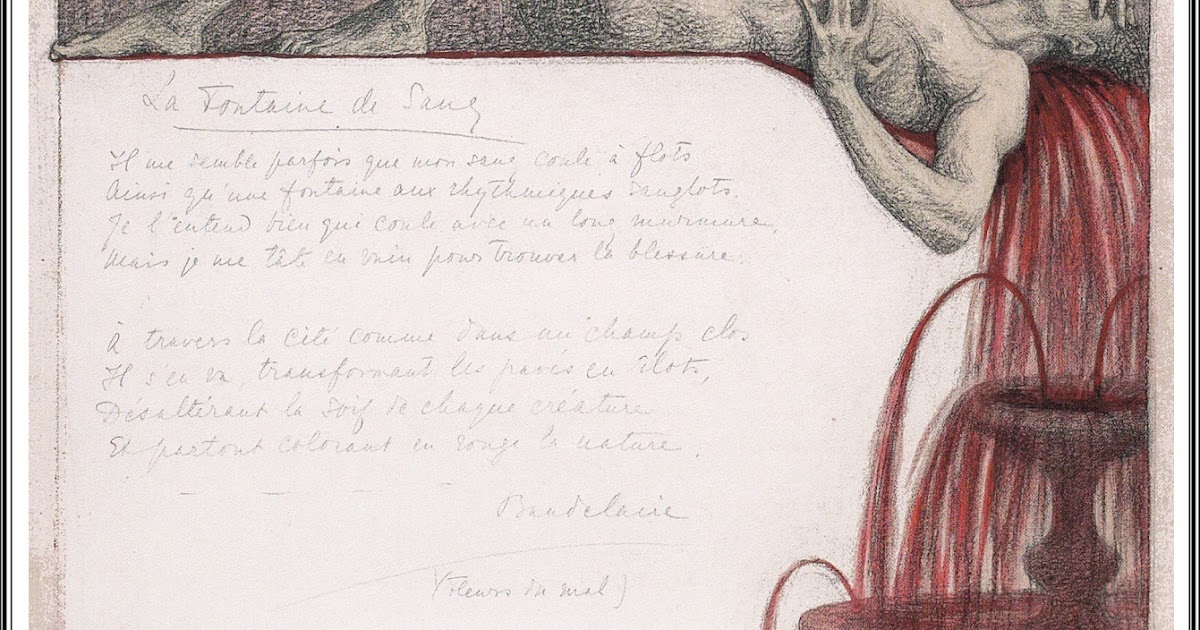 La Fontaine de Sang
Il me semble parfois que mon sang coule à flots
Ainsi qu'une fontaine aux rhythmiques sanglots.
Je l'entend bien qui coule avec un long murmure,
Mais je me tâte en vain pour trouver la blessure.
à travers la cité comme dans un champ clos
Il s'en va, transformant les pavés en îlots,
Désaltérant la soif de chaque créature
Et partout colorant en rouge la nature.
Baudelaire
(Fleurs du mal)